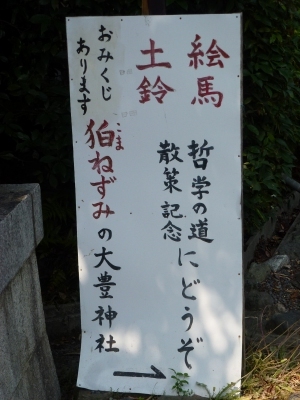 絵馬
土鈴
哲学の道にどうぞ
散策記念
おみくじ
あります
狛ねずみの大豊神社
こま
→